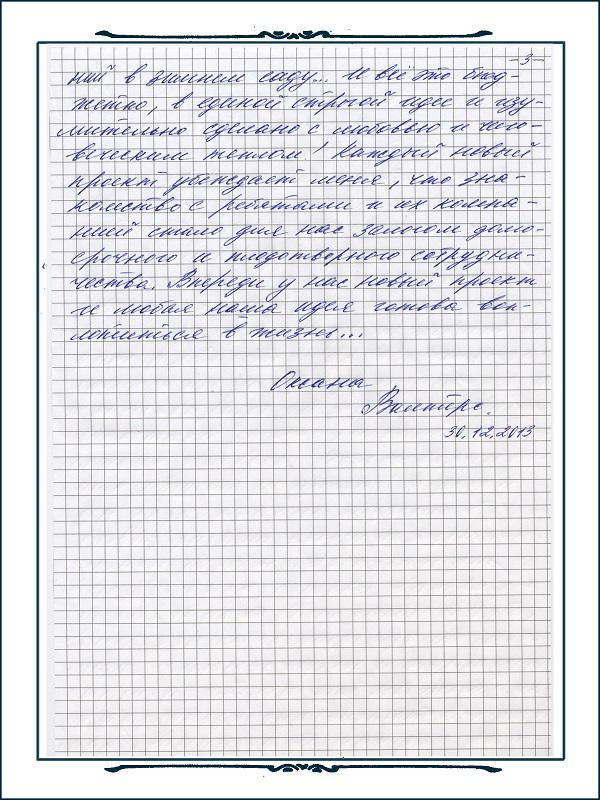 -3-
ний в зимнем саду... И всё это бюд-
жетно, в единой строгой идее и изу-
мительно сделано с любовью и чело-
веческим теплом! Каждый новый
проект убеждает меня, что зна-
комство с ребятами и их компа-
нией стало для нас залогом долго-
срочного и плодотворного сотрудни-
чества. Впереди у нас новый проект
и любая наша идея готова воп-
лотиться в жизнь...
Оксана
30.12.2013